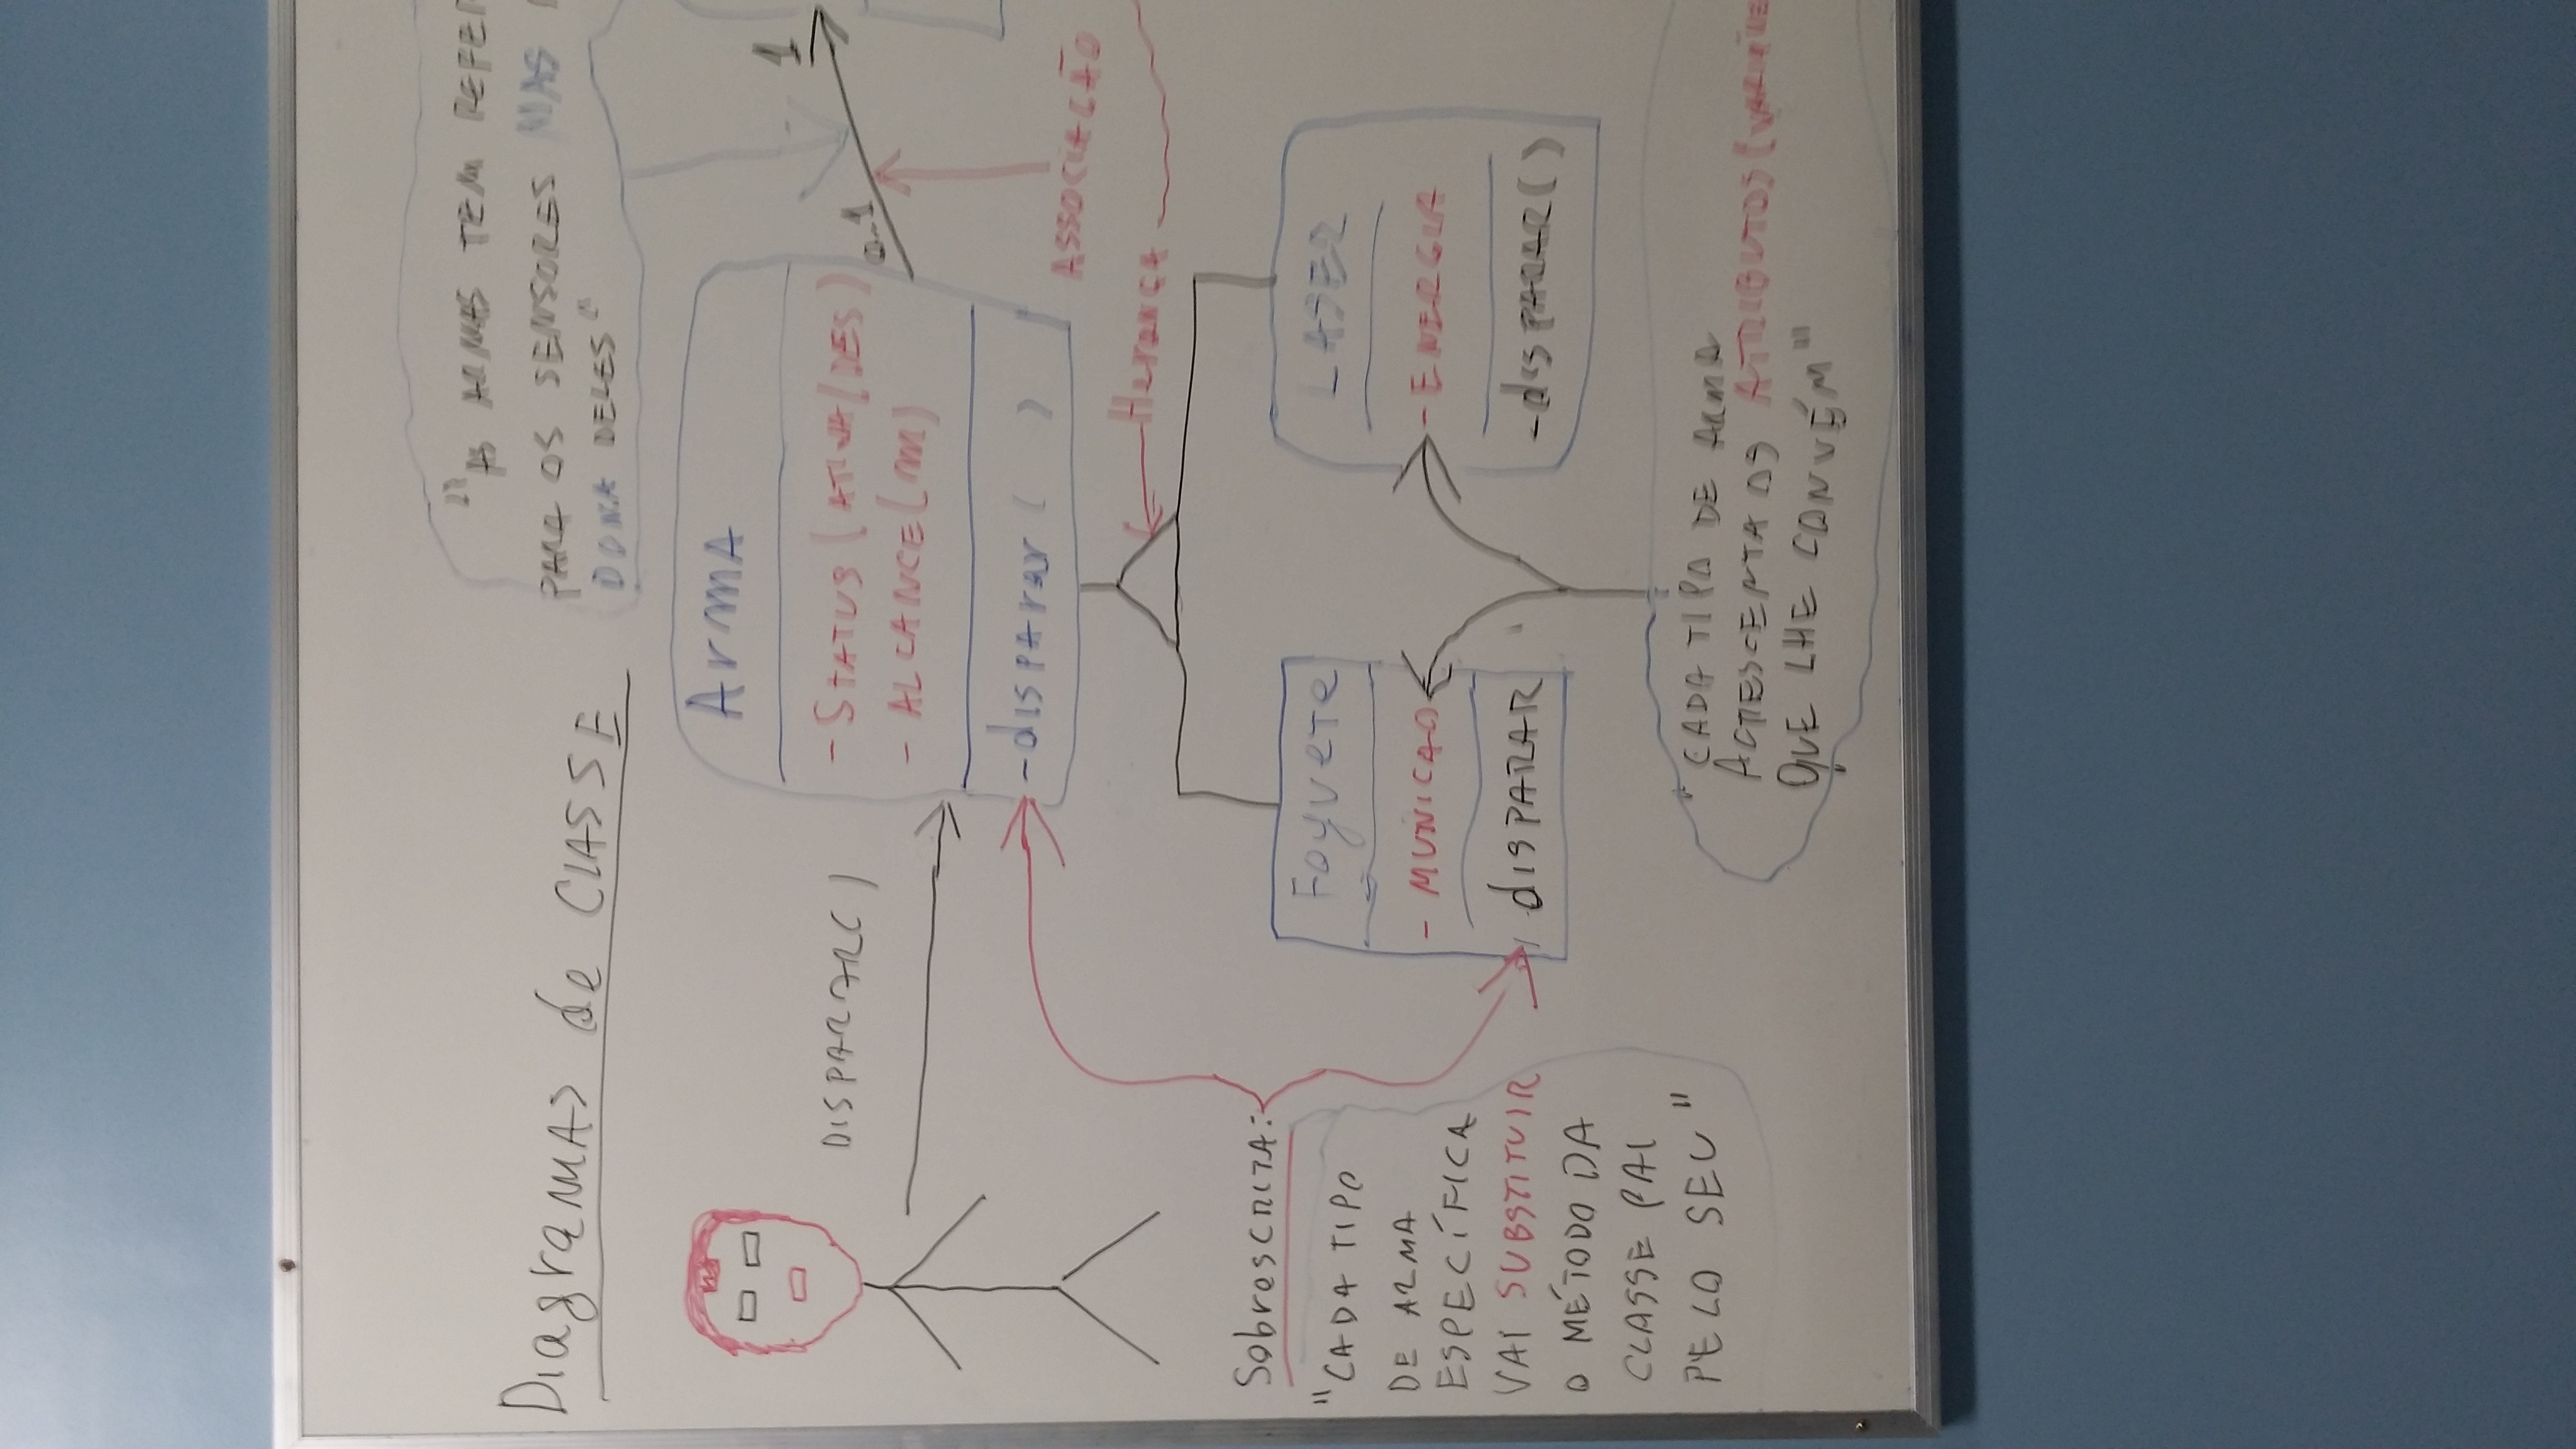 Diagramas de CLASSE
"AS ARMAS TEM REFER
PARA OS SENSORES MAS
DONA DELES"
ArmA
- STATUS (ATIVA/DES)
- ALCANCE (m)
- disparar ( )
DISPARAR()
0..1
1
ASSOCIAÇÃO
Herança
Sobrescrita:
"CADA TIPO
DE ARMA
ESPECÍFICA
VAI SUBSTITUIR
O MÉTODO DA
CLASSE PAI
PELO SEU"
Foguete
- MUNICAO
disPARAR
LASER
- ENERGIA
- disPARAR()
"CADA TIPO DE ArmA
ACRESCENTA OS ATRIBUTOS (VARIÁVE
QUE LHE CONVÉM"